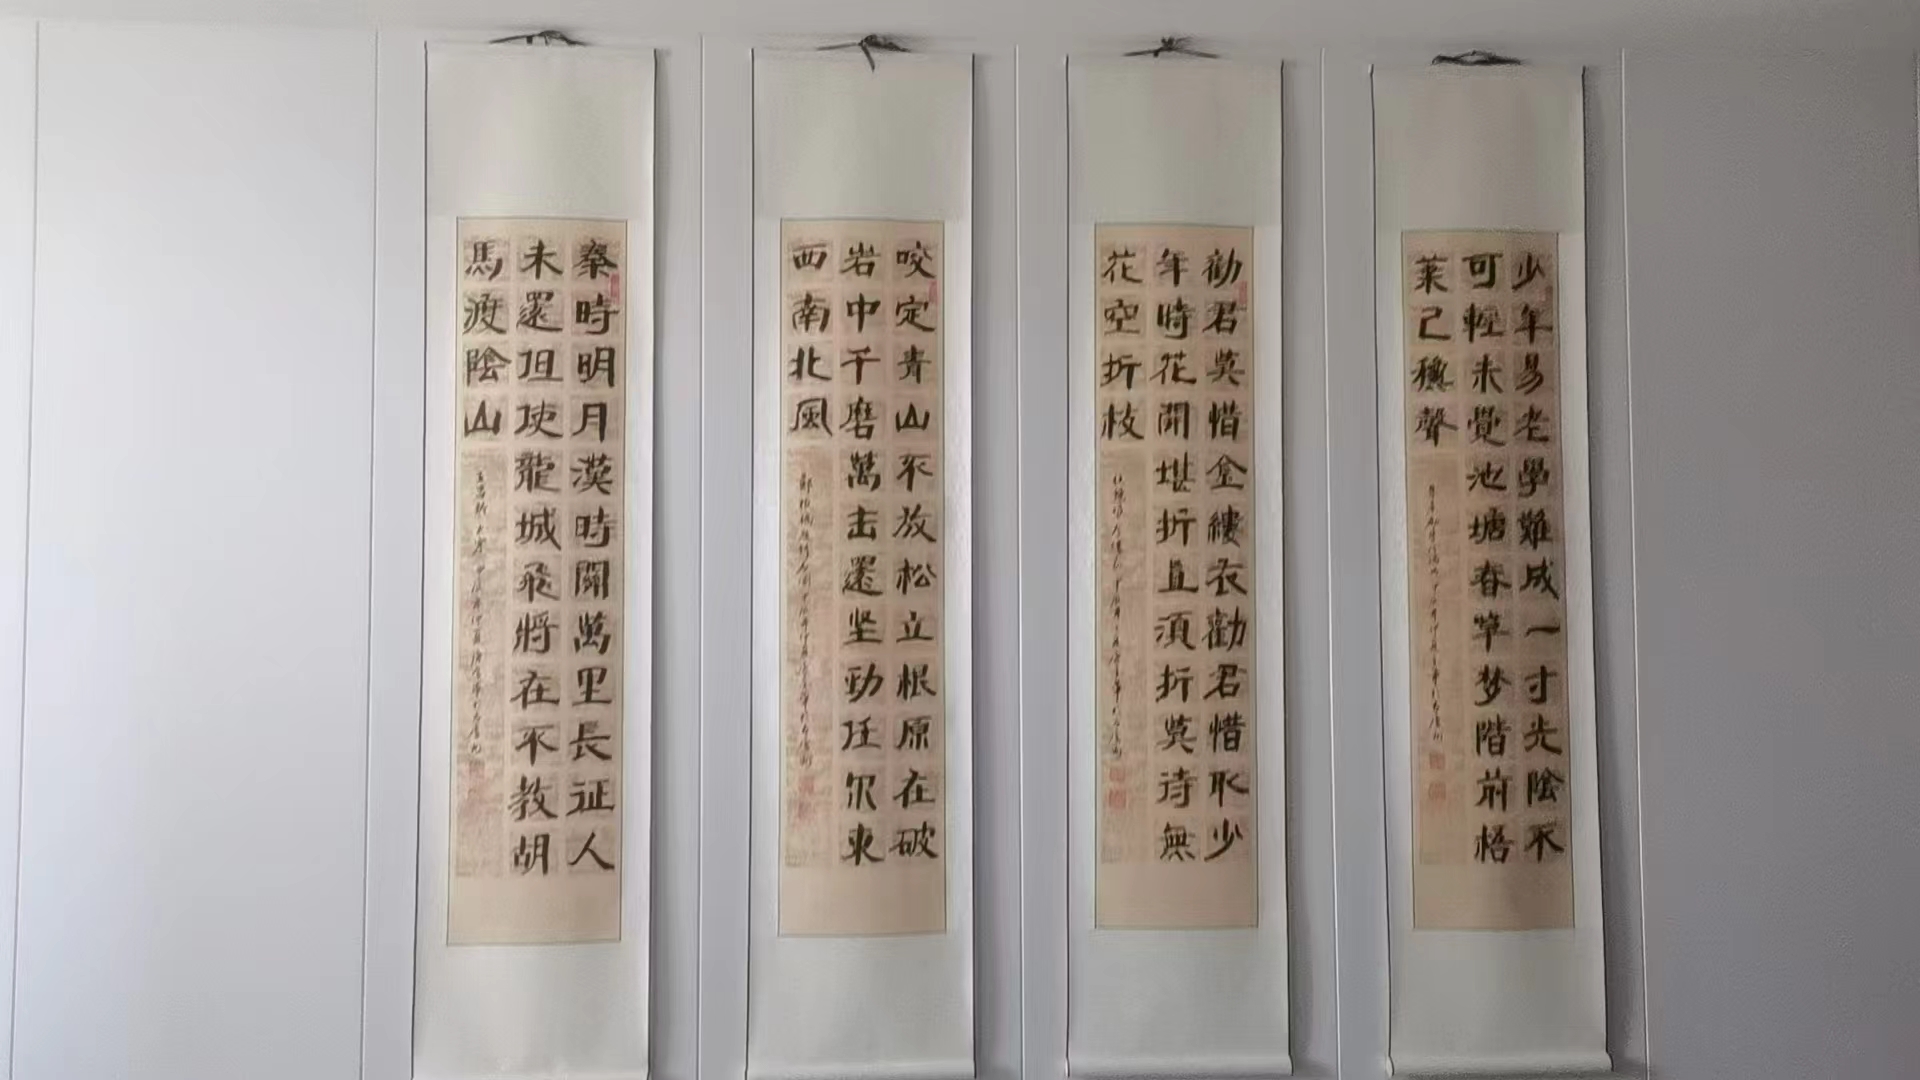 少年易老學難成一寸光陰不
可輕未覺池塘春草梦階前梧
葉已穐聲
勸君莫惜金縷衣勸君惜取少
年時花開堪折直須折莫待無
花空折枝
咬定青山不放松立根原在破
岩中千磨萬击還坚勁任尔東
西南北風
秦時明月漢時關萬里長征人
未還但使龍城飛將在不教胡
馬渡陰山